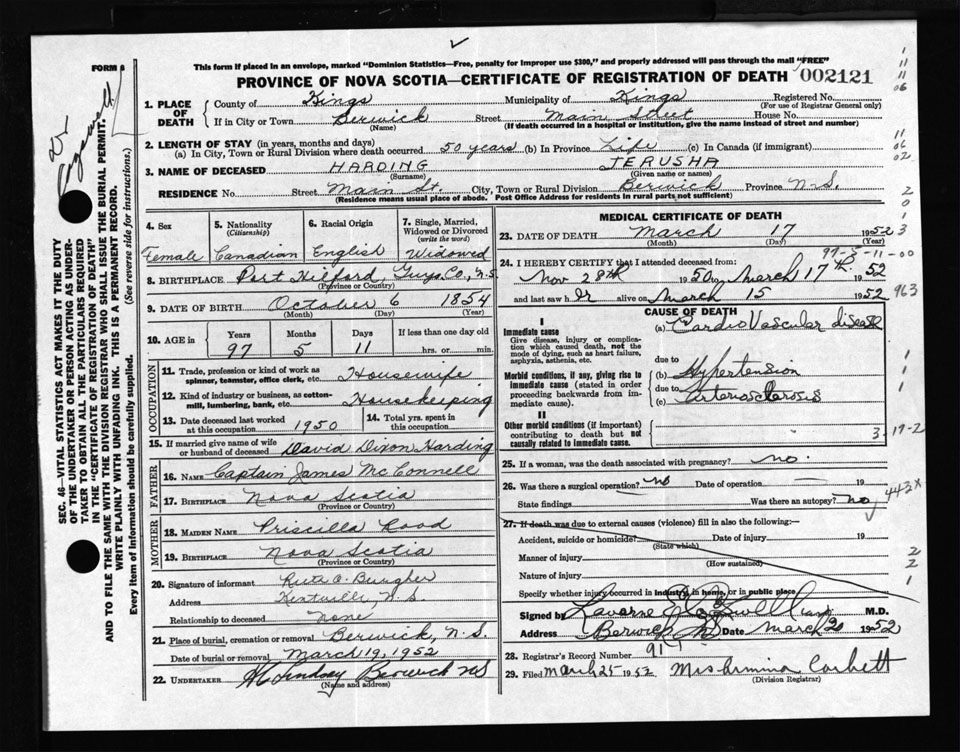 FORM 6
This form if placed in an envelope, marked "Dominion Statistics—Free, penalty for improper use $300," and properly addressed will pass through the mail "FREE"
PROVINCE OF NOVA SCOTIA—CERTIFICATE OF REGISTRATION OF DEATH 002121
1. PLACE OF DEATH
County of Kings Municipality of Kings Registered No.
(For use of Registrar General only)
If in City or Town Berwick Street Main Street House No.
(Name) (If death occurred in a hospital or institution, give the name instead of street and number)
2. LENGTH OF STAY (in years, months and days)
(a) In City, Town or Rural Division where death occurred 50 years (b) In Province Life (c) In Canada (if immigrant)
3. NAME OF DECEASED HARDING JERUSHA
(Surname) (Given name or names)
RESIDENCE No. Street Main St. City, Town or Rural Division Berwick Province N.S.
(Residence means usual place of abode. Post Office Address for residents in rural parts not sufficient)
4. Sex 5. Nationality (Citizenship) 6. Racial Origin 7. Single, Married, Widowed or Divorced (write the word)
Female Canadian English Widowed
8. BIRTHPLACE Port Hilford, Guys Co., N.S.
(Province or Country)
9. DATE OF BIRTH October 6 1854
(Month) (Day) (Year)
10. AGE in Years Months Days If less than one day old
97 5 11 hrs. or min.
OCCUPATION
11. Trade, profession or kind of work as spinner, teamster, office clerk, etc. Housewife
12. Kind of industry or business, as cotton-mill, lumbering, bank, etc. Housekeeping
13. Date deceased last worked at this occupation 1950 14. Total yrs. spent in this occupation
15. If married give name of wife or husband of deceased David Dixon Harding
FATHER
16. NAME Captain James McConnell
17. BIRTHPLACE Nova Scotia
(Province or Country)
MOTHER
18. MAIDEN NAME Priscilla Rood
19. BIRTHPLACE Nova Scotia
(Province or Country)
20. Signature of informant Ruth A. Burgher
Address Kentville, N.S.
Relationship to deceased None
21. Place of burial, cremation or removal Berwick, N.S.
Date of burial or removal March 19, 1952
22. UNDERTAKER Lindsay Berwick NS
(Name and address)
MEDICAL CERTIFICATE OF DEATH
23. DATE OF DEATH March 17 1952
(Month) (Day) (Year)
24. I HEREBY CERTIFY that I attended deceased from:
Nov 28th 1950 to March 17th 1952
and last saw her alive on March 15 1952
CAUSE OF DEATH
I
Immediate cause
Give disease, injury or complication which caused death, not the mode of dying, such as heart failure, asphyxia, asthenia, etc.
(a) Cardio Vascular disease
due to
Morbid conditions, if any, giving rise to immediate cause (stated in order proceeding backwards from immediate cause).
(b) Hypertension
due to
(c) Arteriosclerosis
II
Other morbid conditions (if important) contributing to death but not causally related to immediate cause.
3
25. If a woman, was the death associated with pregnancy? no.
26. Was there a surgical operation? no Date of operation 19
State findings Was there an autopsy? no
27. If death was due to external causes (violence) fill in also the following:—
Accident, suicide or homicide? Date of injury 19
(State which)
Manner of injury
(How sustained)
Nature of injury
Specify whether injury occurred in industry, in home, or in public place
Signed by M.D.
Address Berwick NS Date March 20 1952
28. Registrar's Record Number 91
29. Filed March 25 1952 Mrs Armina Corbett
(Division Registrar)
SEC. 46—VITAL STATISTICS ACT MAKES IT THE DUTY
OF THE UNDERTAKER OR PERSON ACTING AS UNDER-
TAKER TO OBTAIN ALL THE PARTICULARS REQUIRED
IN THE "CERTIFICATE OF REGISTRATION OF DEATH"
AND TO FILE THE SAME WITH THE DIVISION REGISTRAR WHO SHALL ISSUE THE BURIAL PERMIT.
WRITE PLAINLY WITH UNFADING INK. THIS IS A PERMANENT RECORD.
Every item of information should be carefully supplied. (See reverse side for instructions.)
11
11
06
11
06
02
2
0
3
97-5-11-00
963
1
1
1
19-2
443X
2
2
1